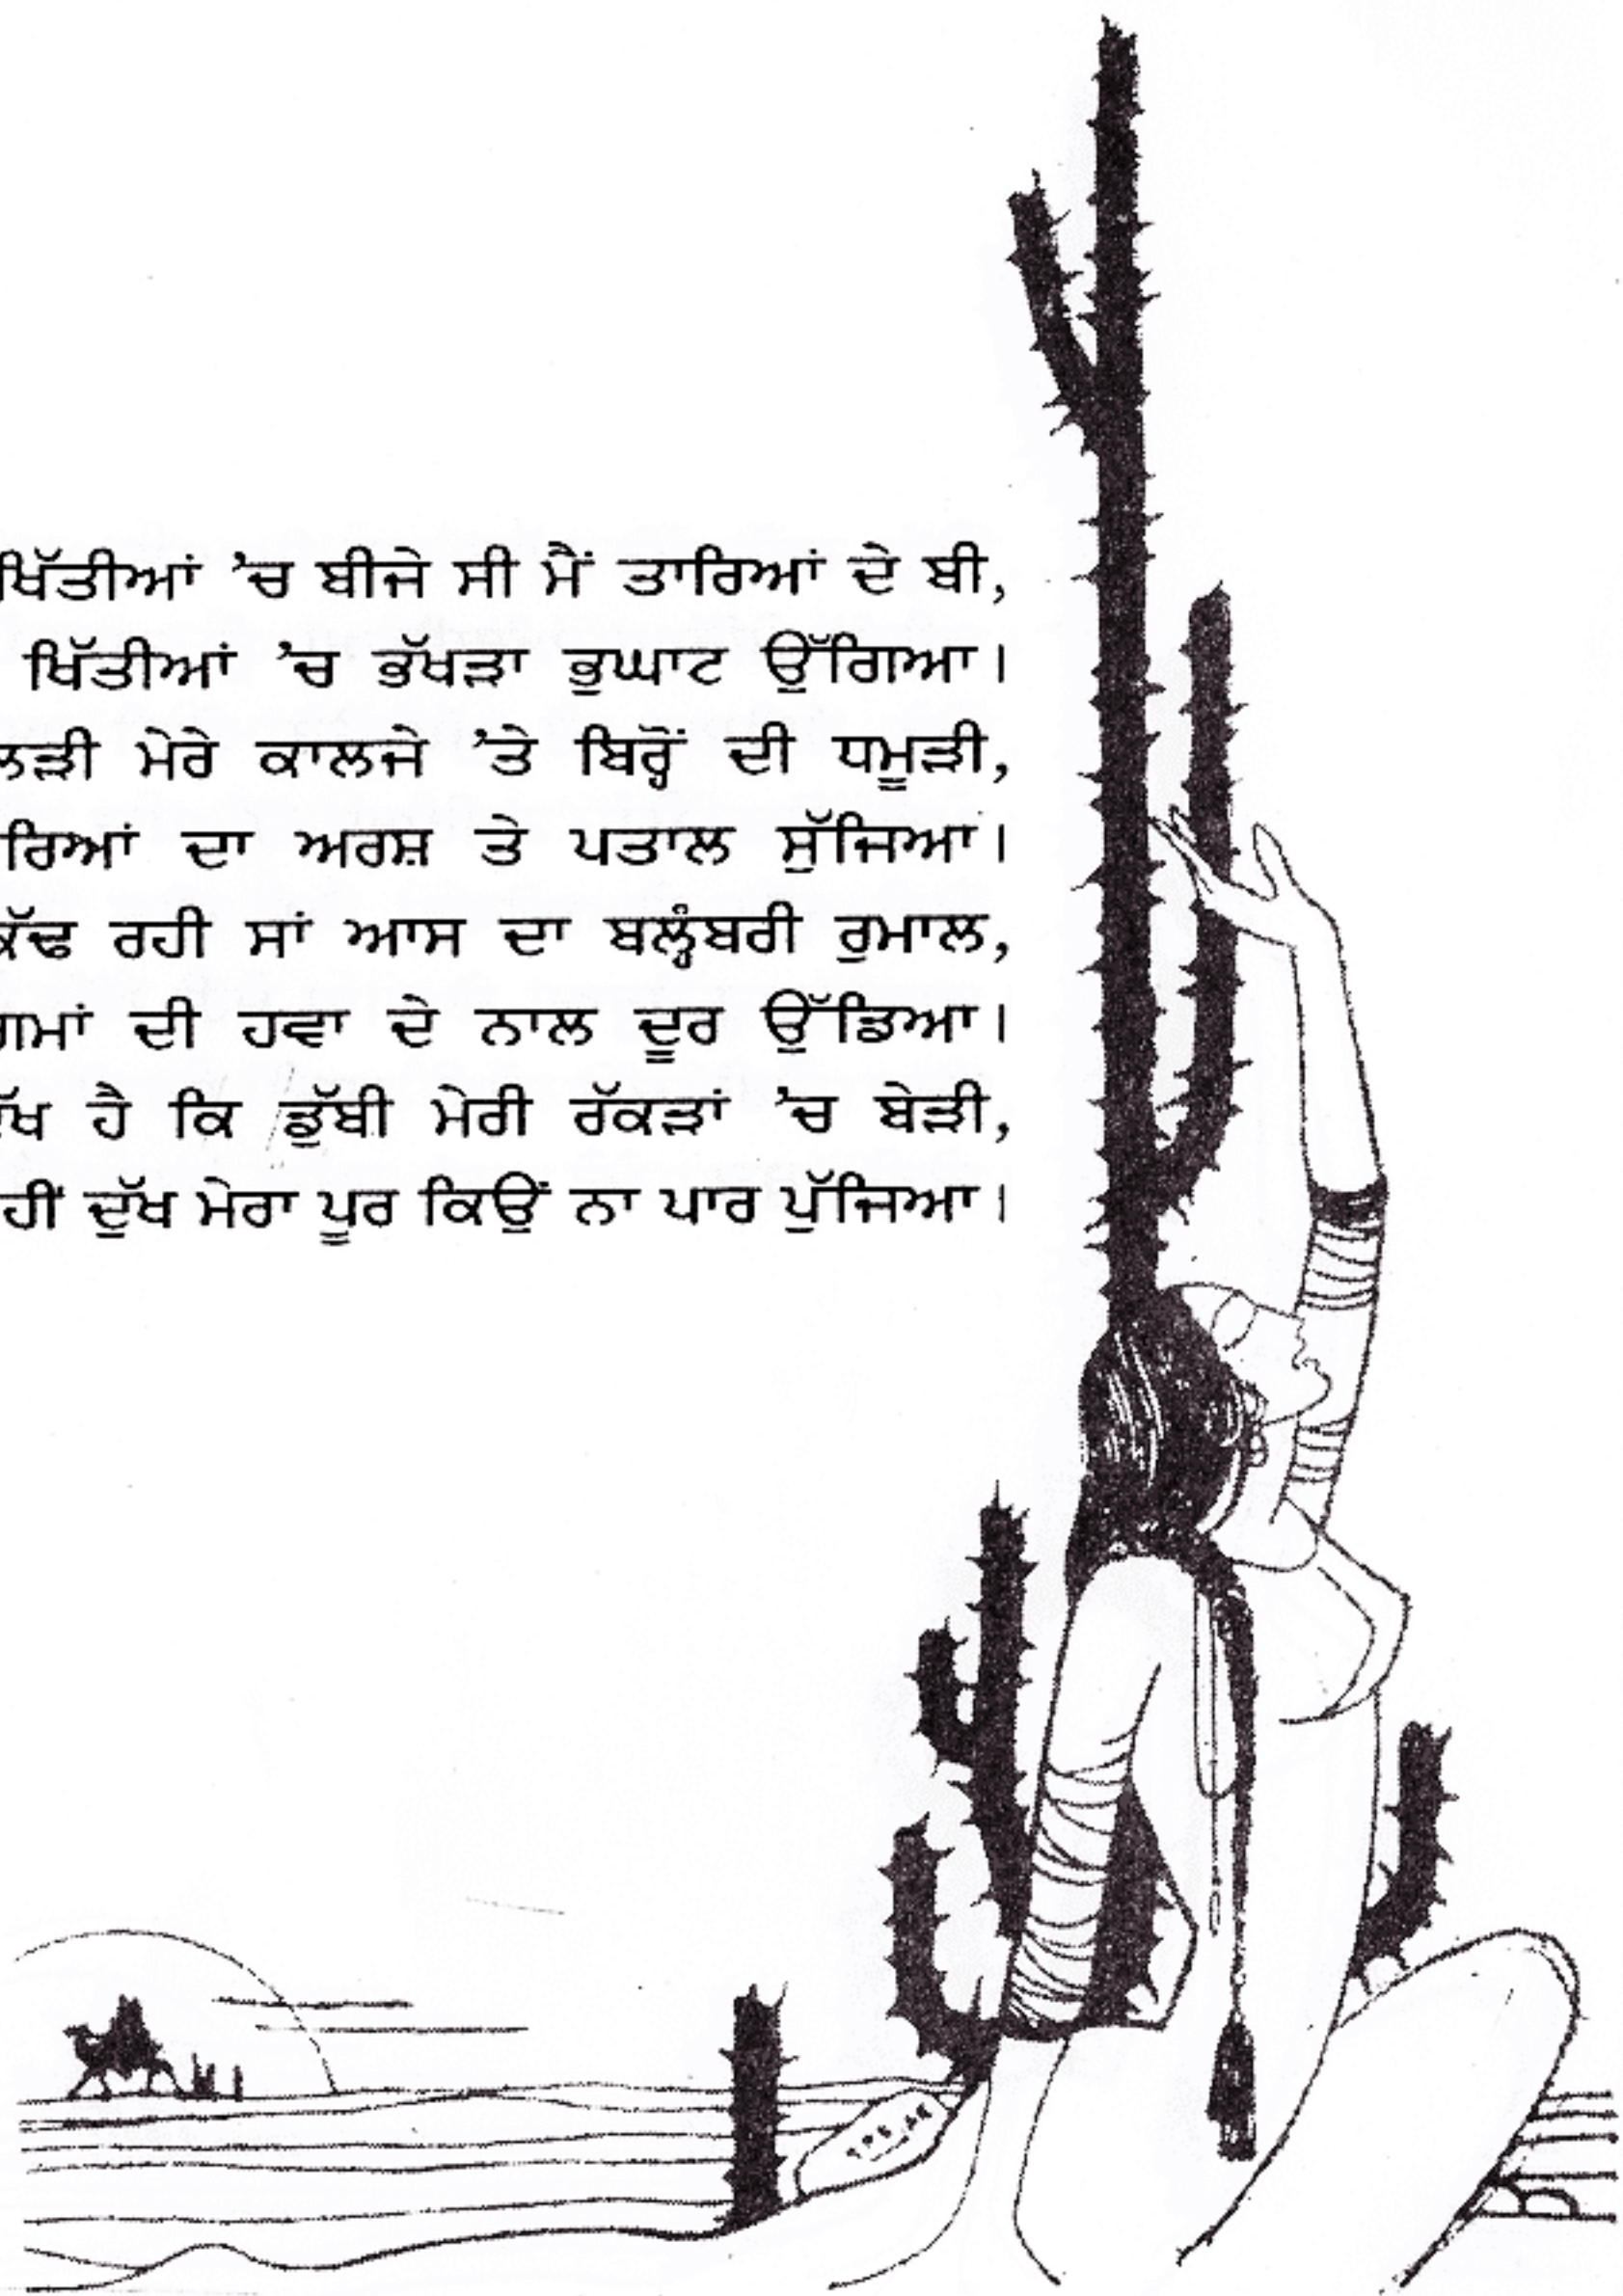 ਖਿੱਤੀਆਂ ’ਚ ਬੀਜੇ ਸੀ ਮੈਂ ਤਾਰਿਆਂ ਦੇ ਬੀ,
ਖਿੱਤੀਆਂ ’ਚ ਭੱਖੜਾ ਭੁਘਾਟ ਉੱਗਿਆ।
ਮੇਰੇ ਕਾਲਜੇ ’ਤੇ ਬਿਰ੍ਹੋਂ ਦੀ ਧਮੂੜੀ,
ਦਾ ਅਰਸ਼ ਤੇ ਪਤਾਲ ਸੁੱਜਿਆ।
ਕੱਢ ਰਹੀ ਸਾਂ ਆਸ ਦਾ ਬਲ੍ਹੰਬਰੀ ਰੁਮਾਲ,
ਦੀ ਹਵਾ ਦੇ ਨਾਲ ਦੂਰ ਉੱਡਿਆ।
ਹੈ ਕਿ ਡੁੱਬੀ ਮੇਰੀ ਰੱਕੜਾਂ ’ਚ ਬੇੜੀ,
ਦੁੱਖ ਮੇਰਾ ਪੂਰ ਕਿਉਂ ਨਾ ਪਾਰ ਪੁੱਜਿਆ।